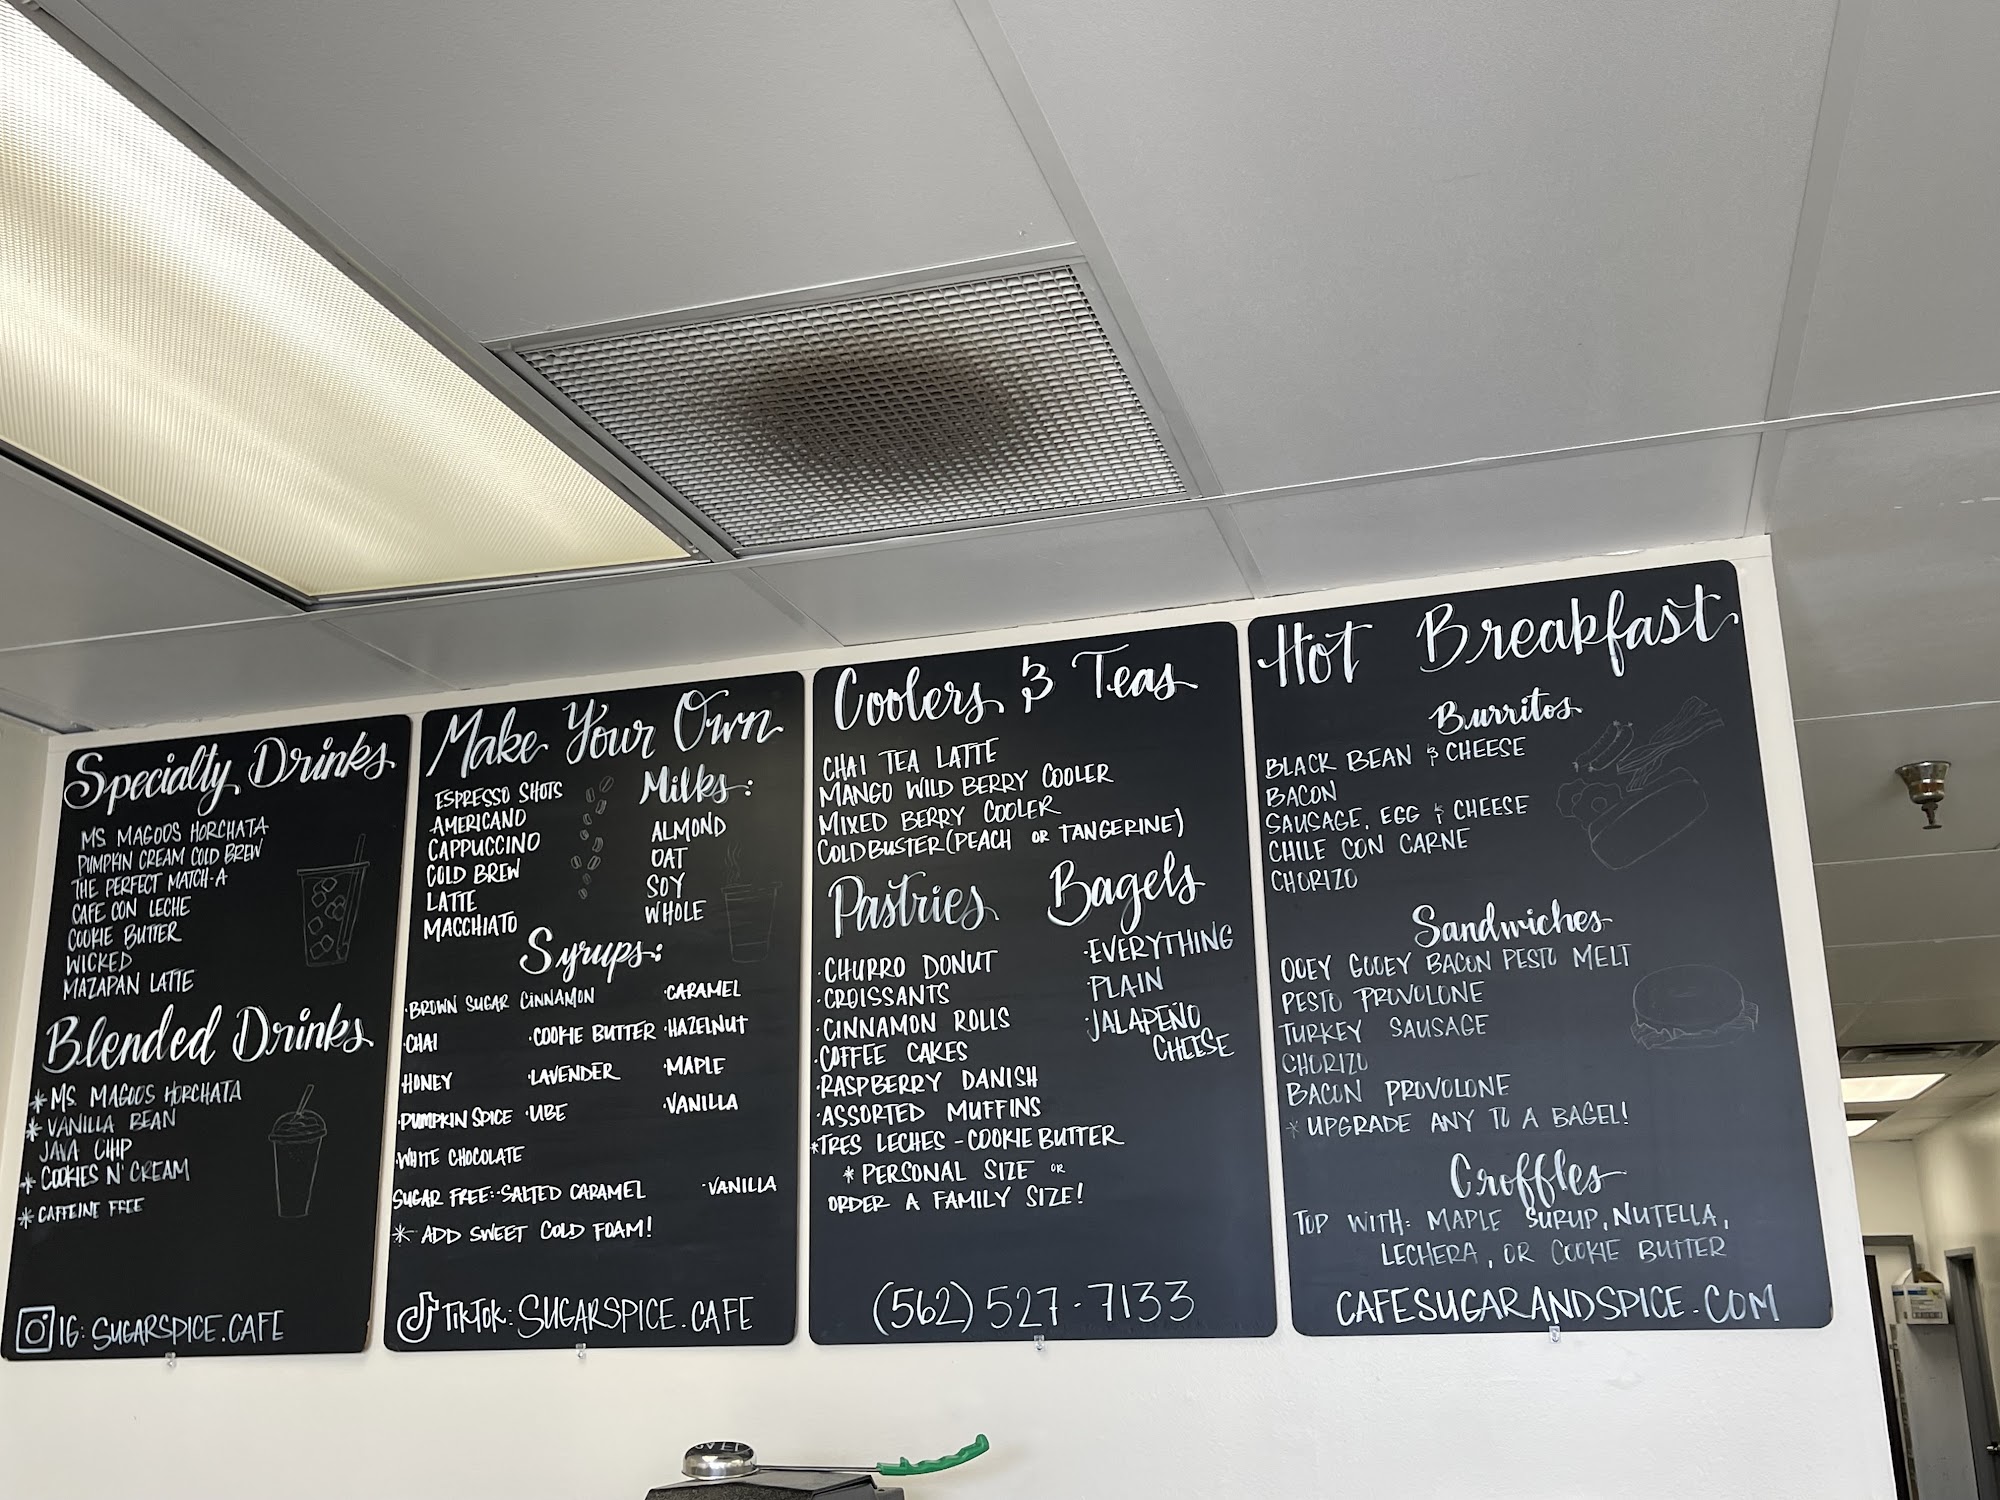 Specialty Drinks
MS. MAGOOS HORCHATA
PUMPKIN CREAM COLD BREW
THE PERFECT MATCH-A
CAFE CON LECHE
COOKIE BUTTER
WICKED
MAZAPAN LATTE
Blended Drinks
* MS. MAGOOS HORCHATA
* VANILLA BEAN
JAVA CIHP
* COOKIES N' CREAM
* CAFFEINE FREE
IG: SUGARSPICE.CAFE
Make Your Own
ESPRESSO SHOTS
AMERICANO
CAPPUCCINO
COLD BREW
LATTE
MACCHIATO
Milks:
ALMOND
OAT
SOY
WHOLE
Syrups:
·BROWN SUGAR CINNAMON ·CARAMEL
·CHAI ·COOKIE BUTTER ·HAZELNUT
·HONEY ·LAVENDER ·MAPLE
·PUMPKIN SPICE ·UBE ·VANILLA
·WHITE CHOCOLATE
SUGAR FREE: ·SALTED CARAMEL ·VANILLA
* ADD SWEET COLD FOAM!
TIKTOK: SUGARSPICE.CAFE
Coolers & Teas
CHAI TEA LATTE
MANGO WILD BERRY COOLER
MIXED BERRY COOLER
COLDBUSTER (PEACH OR TANGERINE)
Pastries
·CHURRO DONUT
·CROISSANTS
·CINNAMON ROLLS
·COFFEE CAKES
·RASPBERRY DANISH
·ASSORTED MUFFINS
*TRES LECHES - COOKIE BUTTER
* PERSONAL SIZE OR
ORDER A FAMILY SIZE!
Bagels
·EVERYTHING
·PLAIN
·JALAPEÑO
CHEESE
(562) 527-7133
Hot Breakfast
Burritos
BLACK BEAN & CHEESE
BACON
SAUSAGE, EGG & CHEESE
CHILE CON CARNE
CHORIZO
Sandwiches
OOEY GOOEY BACON PESTO MELT
PESTO PROVOLONE
TURKEY SAUSAGE
CHORIZO
BACON PROVOLONE
* UPGRADE ANY TO A BAGEL!
Croffles
TOP WITH: MAPLE SURUP, NUTELLA,
LECHERA, OR COOKIE BUTTER
CAFESUGARANDSPICE.COM